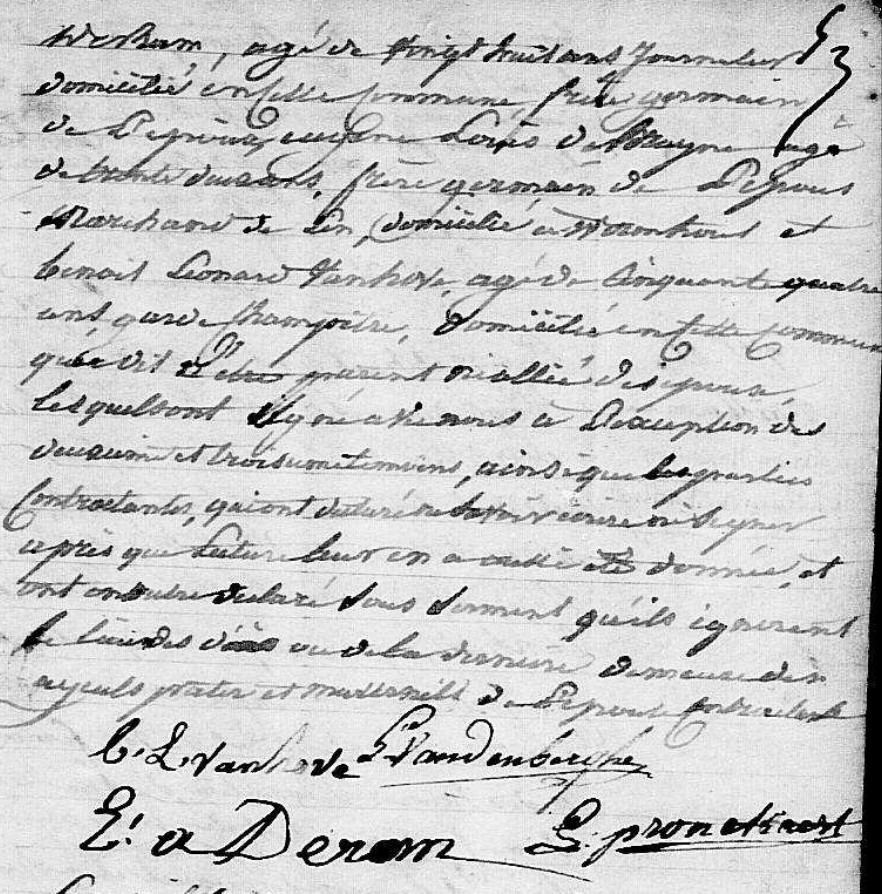 agé de vingt huit ans Journalier
domicilié en cette commune, frère germain
de l'epoux, eugene Louis de agé
de trente deux ans, frère germain de l'epoux
Marchand de Lin, domicilié a et
Benoit Léonard Vanhove, agé de Cinquante quatre
ans, garde Champêtre, domicilié en cette commune
qui a dit n'être parent ni allié des epoux,
lesquels ont signé avec nous a l'exception des
deuxieme et troisieme temoins, ainsi que les parties
Contractantes, qui ont declaré ne savoir ecrire ni signer
après que lecture leur en a été donnée, et
ont en outre declaré sous serment qu'ils ignorent
le lieu des décès ou de la derniere demeure des
ayeuls pater et maternels de l'epouse contractante
B. L. Vanhove Vandenberghe
a Deram